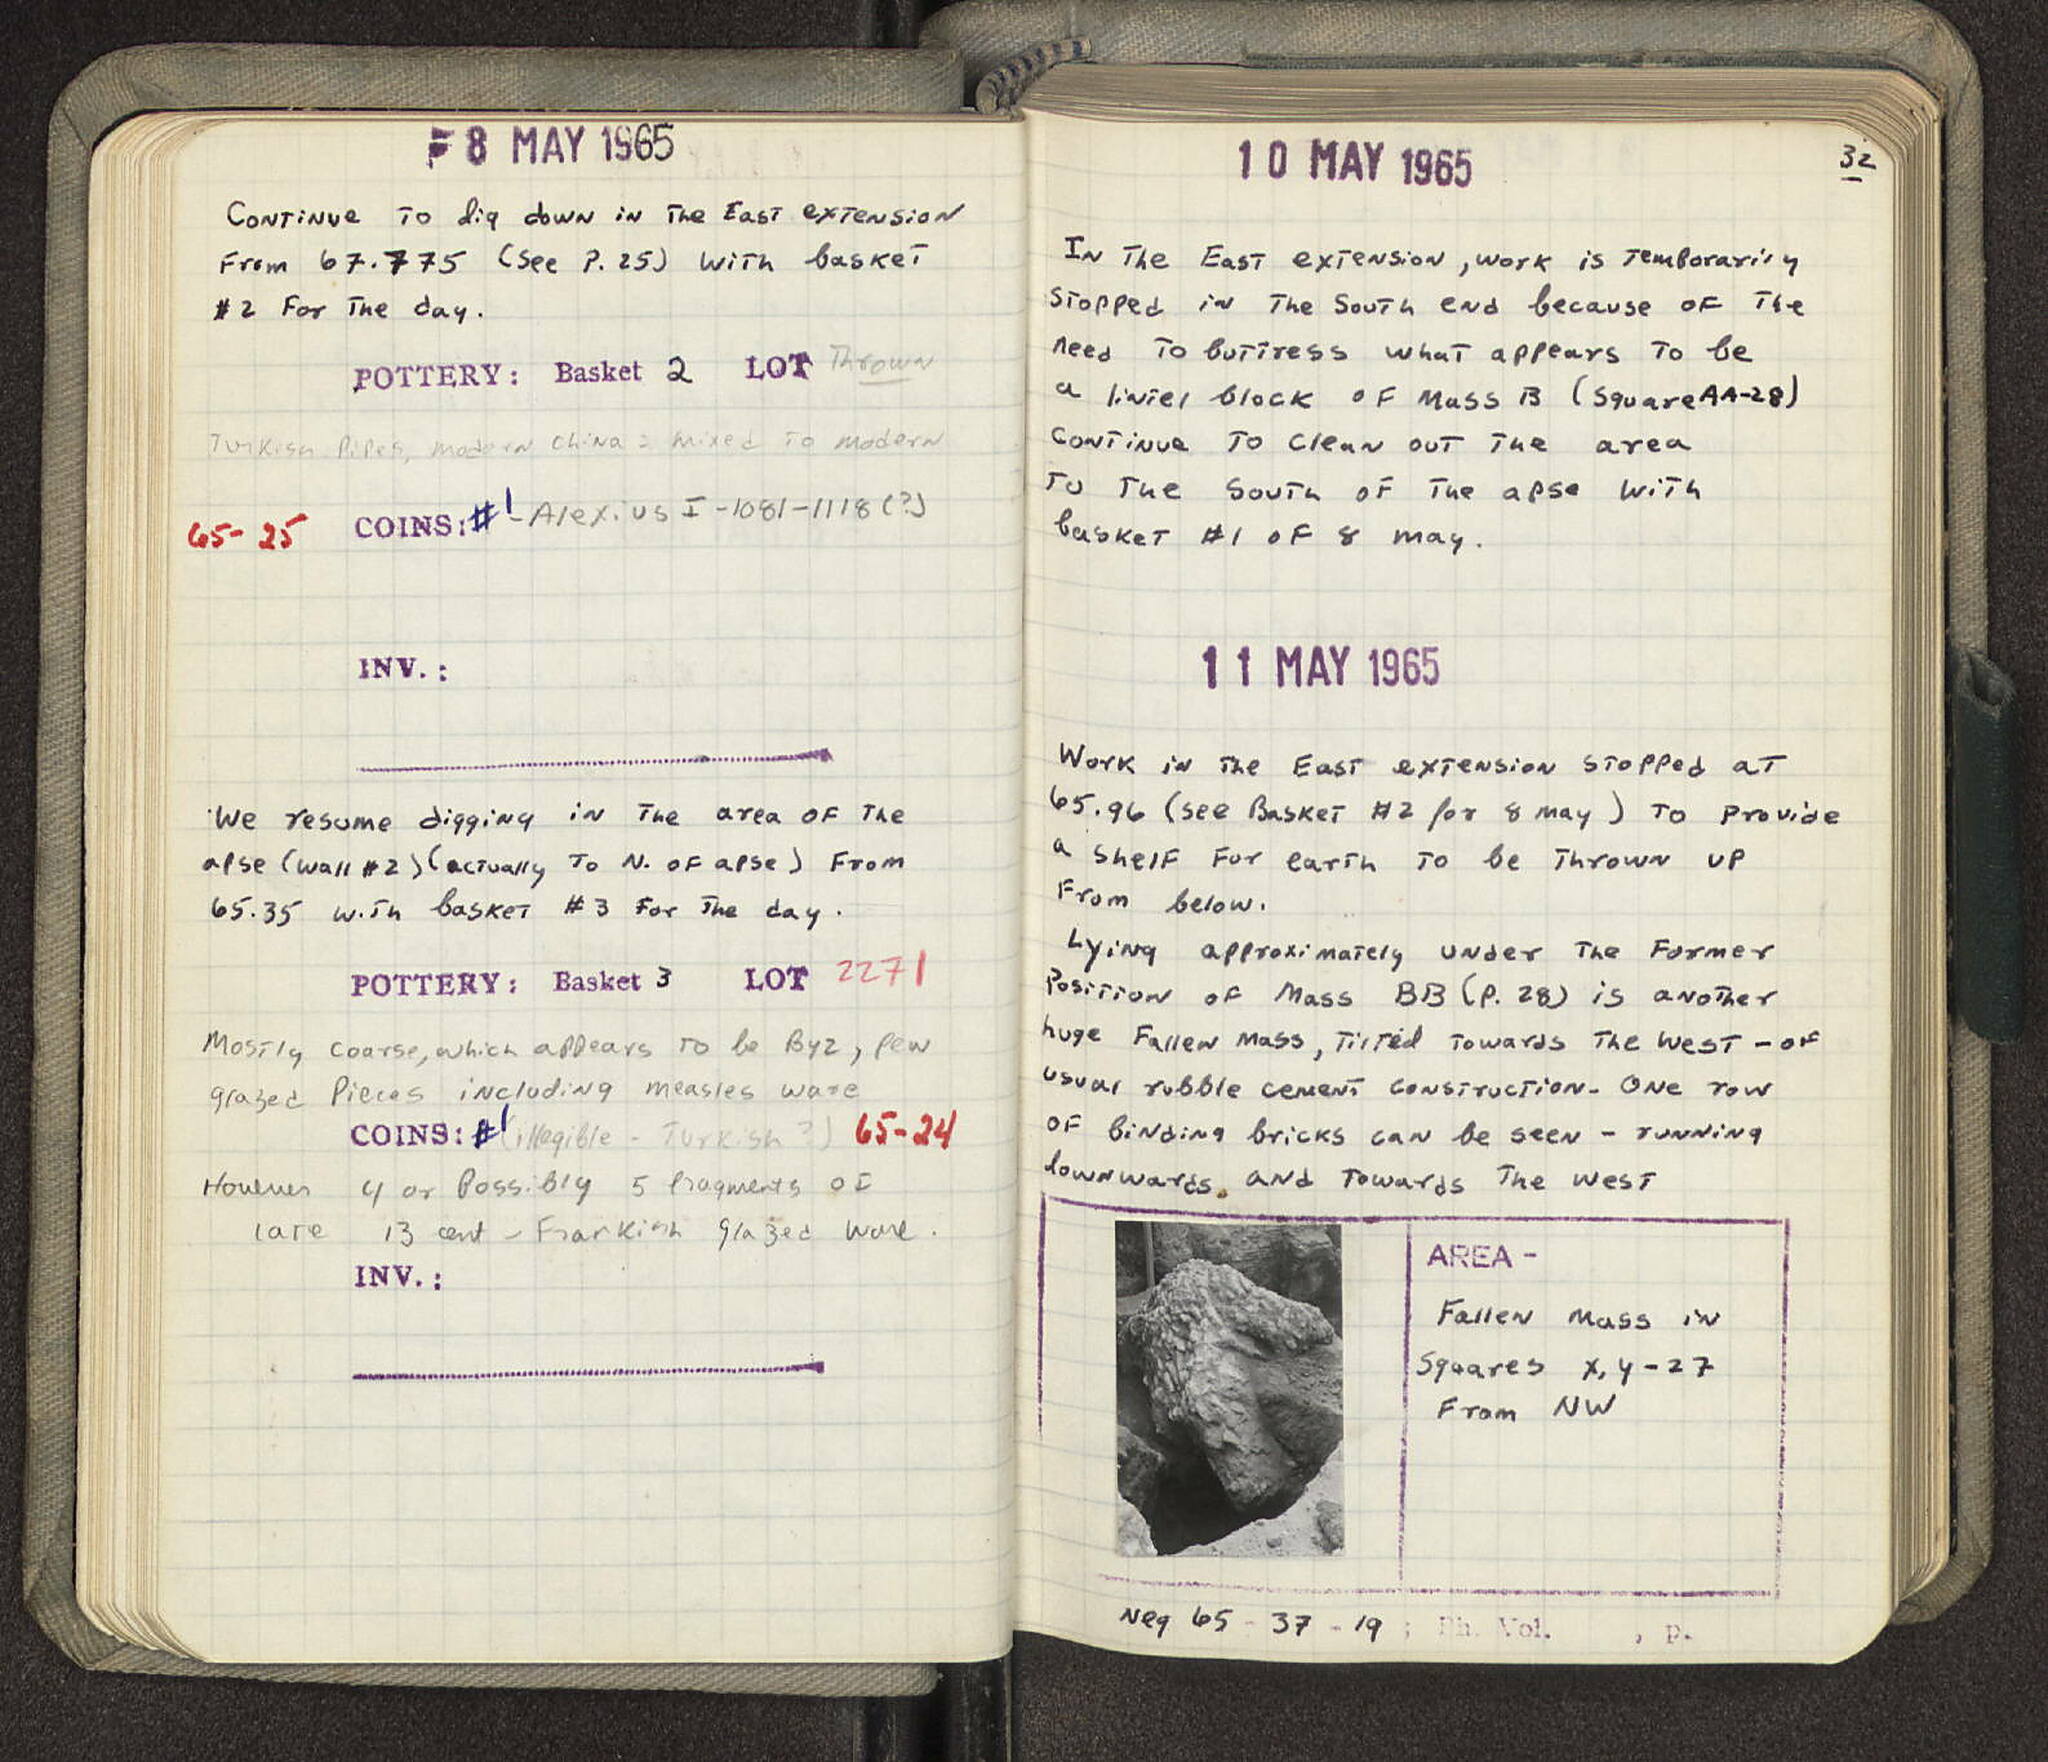 8 MAY 1965
Continue to dig down in the East extension
From 67.775 (see P. 25) with basket
#2 For the day.
POTTERY: Basket 2 LOT Thrown
Turkish Pipes, modern china = mixed to modern
65-25 COINS: #1 - Alexius I - 1081-1118 (?)
INV.:
We resume digging in the area of the
apse (wall #2) (actually to N. of apse) From
65.35 with basket #3 For the day.
POTTERY: Basket 3 LOT 2271
Mostly coarse, which appears to be Byz, few
glazed Pieces including measles ware
COINS: #1 (illegible - Turkish?) 65-24
However 4 or Possibly 5 fragments of
late 13 cent - Frankish glazed ware.
INV.:
32
10 MAY 1965
In the East extension, work is temporarily
stopped in the South end because of the
need to buttress what appears to be
a lintel block of Mass B (Square AA-28)
Continue to clean out the area
to the South of the apse with
basket #1 of 8 may.
11 MAY 1965
Work in the East extension stopped at
65.96 (see Basket #2 for 8 May) to provide
a shelf for earth to be thrown up
From below.
Lying approximately under the Former
Position of Mass BB (P. 28) is another
huge Fallen Mass, Tilted towards the west - of
usual rubble cement construction - One row
of binding bricks can be seen - running
downwards and towards the west
AREA -
Fallen Mass in
Squares X, Y - 27
From NW
Neg 65 - 37 - 19 ; Ph. Vol. , p.